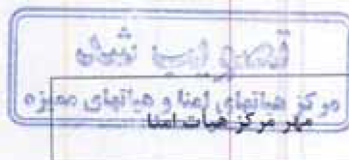 تصویب شد
مرکز هیاتهای امنا و هیاتهای ممیزه
مهر مرکز هیات امنا